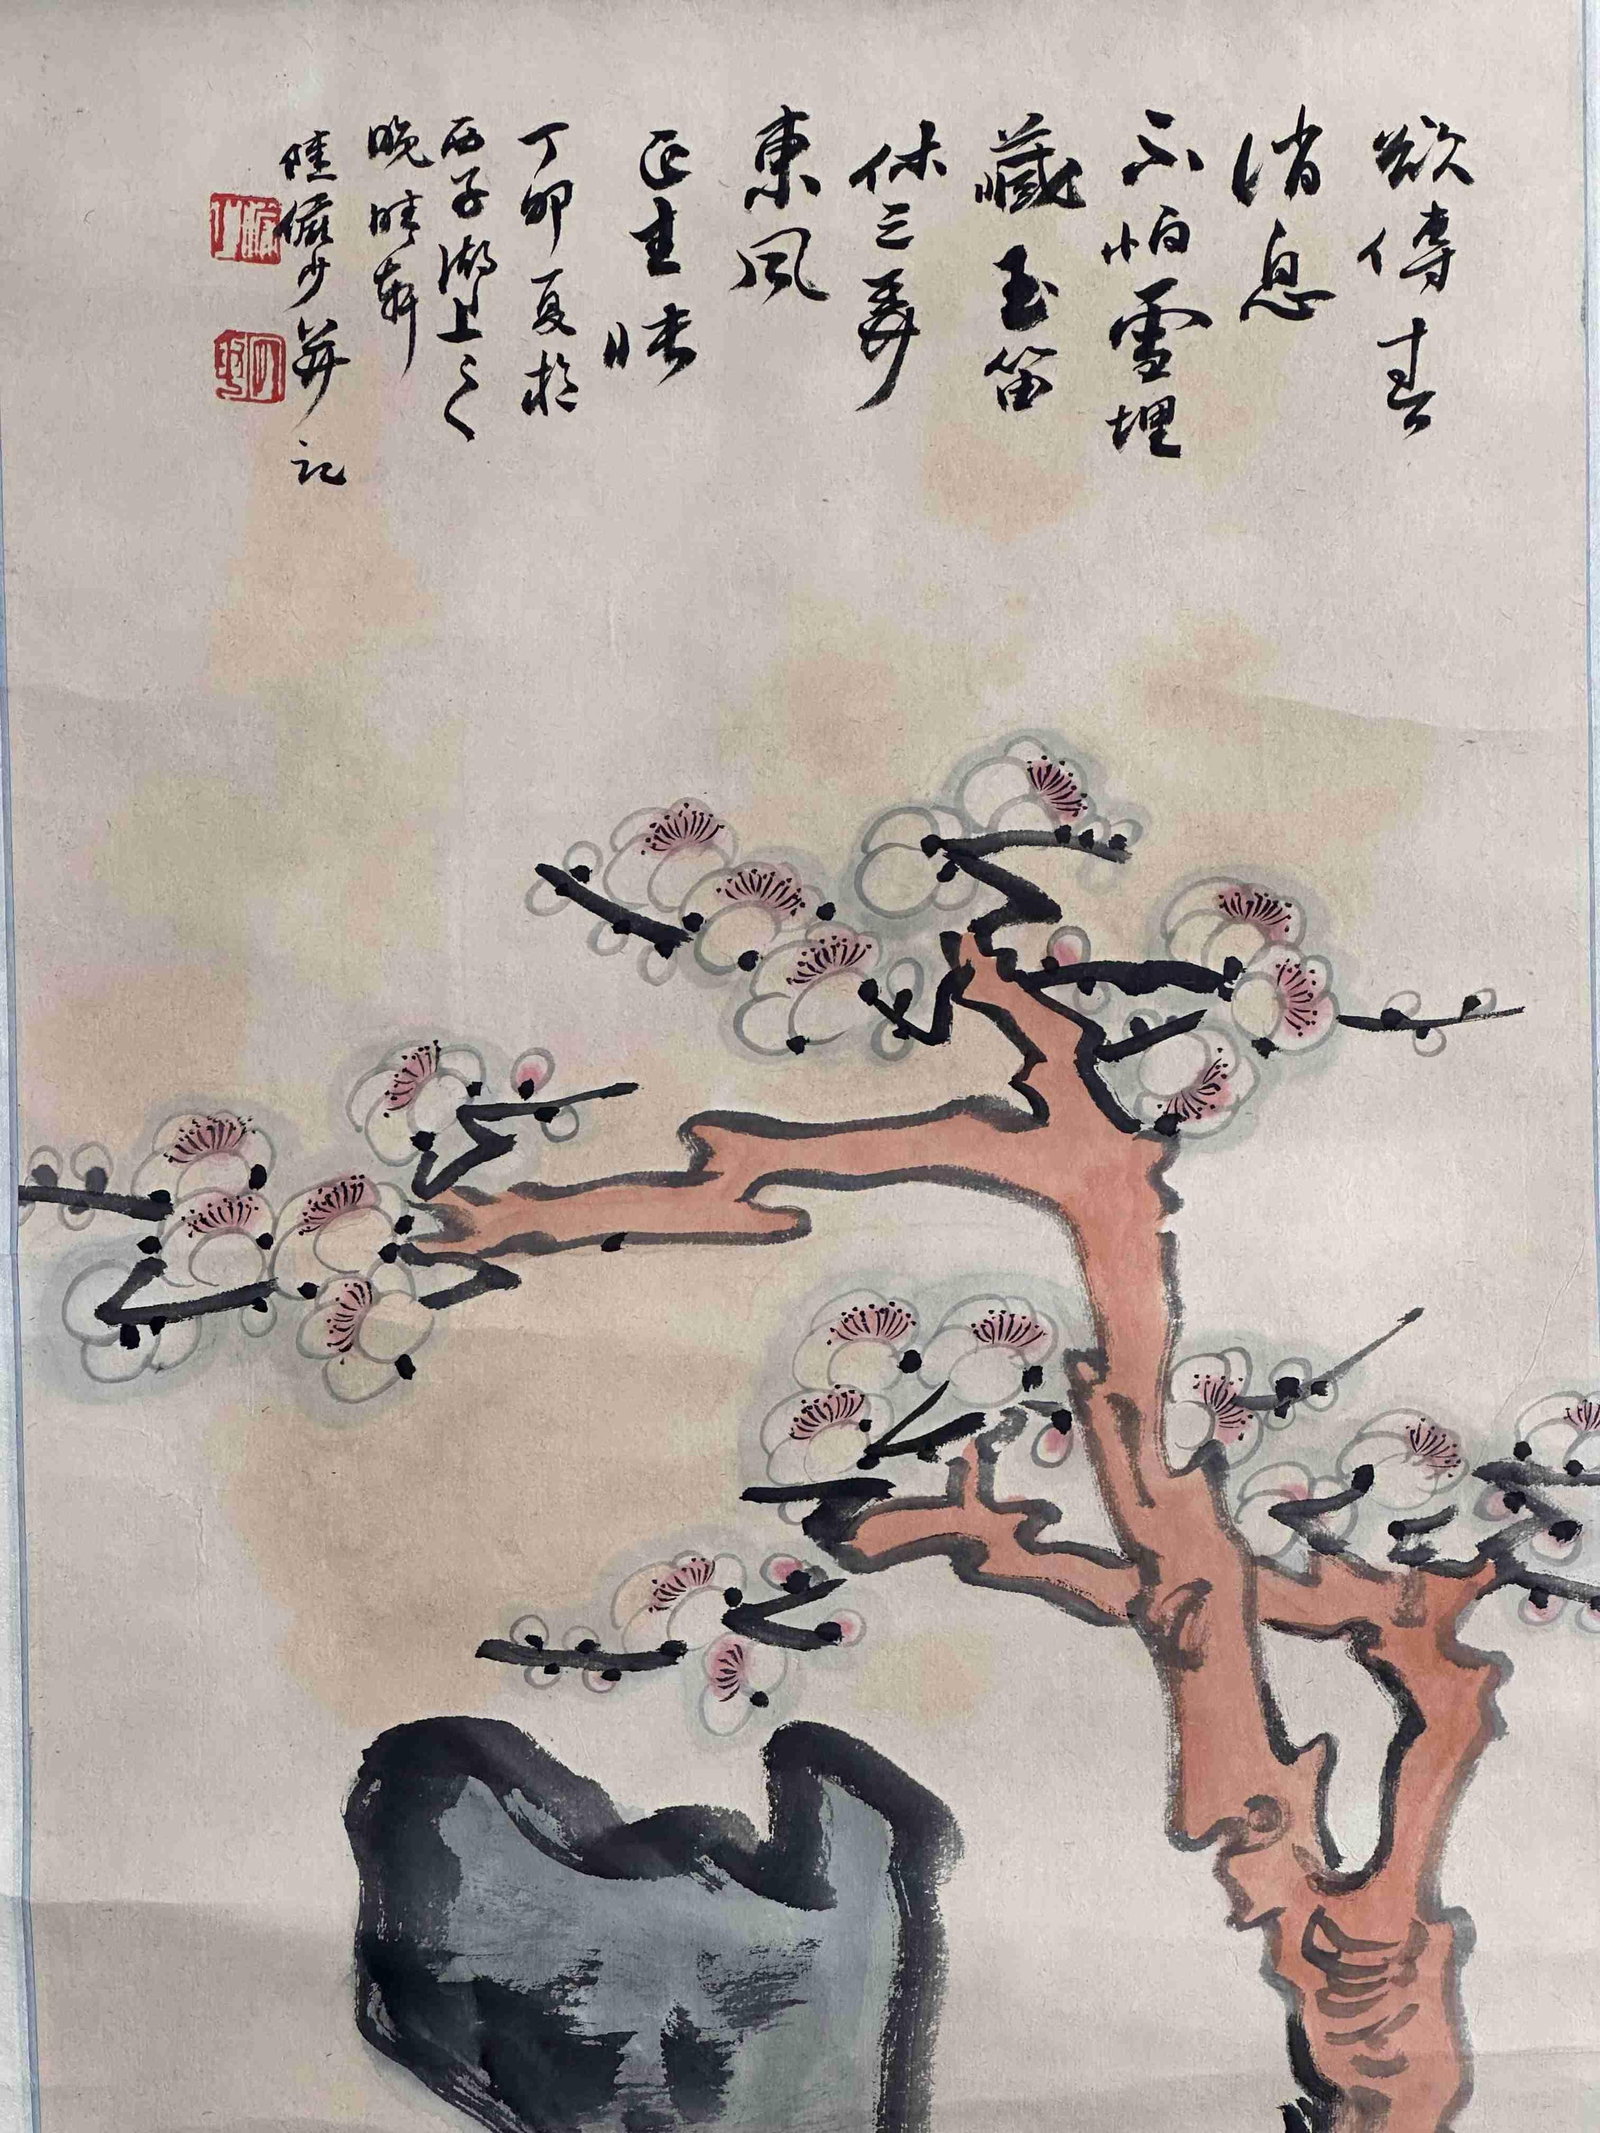 欲傳春
消息
不怕雪埋
藏玉笛
休三弄
東風
正主張
丁卯夏於
西子湖上之
晚晴軒
陸儼少并記